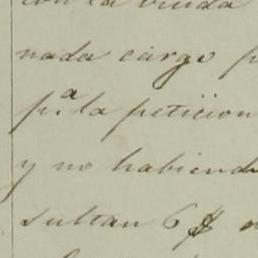 con la viuda
nada cargo p
p.ª la peticion
y no habiend
sultan 6 $